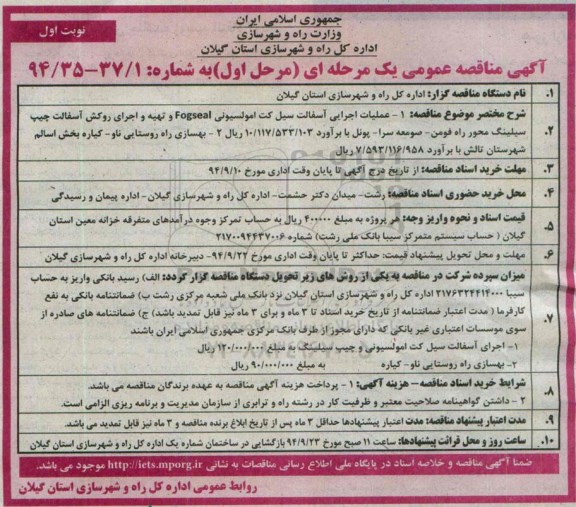 جمهوری اسلامی ایران
وزارت راه و شهرسازی
اداره کل راه و شهرسازی استان گیلان
نوبت اول
آگهی مناقصه عمومی یک مرحله ای (مرحل اول)به شماره: ۳۷/۱-۹۴/۳۵
۱. نام دستگاه مناقصه گزار: اداره کل راه و شهرسازی استان گیلان
۲. شرح مختصر موضوع مناقصه: ۱ - عملیات اجرایی آسفالت سیل کت امولسیونی Fogseal و تهیه و اجرای روکش آسفالت چیپ
سیلینگ محور راه فومن- صومعه سرا- پونل با برآورد ۱۰/۱۱۷/۵۳۳/۱۰۳ ریال ۲ - بهسازی راه روستایی ناو- کیاره بخش اسالم
شهرستان تالش با برآورد ۷/۵۹۳/۱۱۶/۹۵۸ ریال
۳. مهلت خرید اسناد مناقصه: از تاریخ درج آگهی تا پایان وقت اداری مورخ ۹۴/۹/۱۰
۴. محل خرید حضوری اسناد مناقصه: رشت- میدان دکتر حشمت- اداره کل راه و شهرسازی گیلان- اداره پیمان و رسیدگی
۵. قیمت اسناد و نحوه واریز وجه: هر پروژه به مبلغ ۴۰۰۰۰۰ ریال به حساب تمرکز وجوه درآمدهای متفرقه خزانه معین استان
گیلان ( حساب سیستم متمرکز سیبا بانک ملی رشت) شماره ۲۱۷۰۰۹۴۴۳۷۰۰۶
۶. مهلت و محل تحویل پیشنهاد قیمت: حداکثر تا پایان وقت اداری مورخ ۹۴/۹/۲۲- دبیرخانه اداره کل راه و شهرسازی گیلان
۷. میزان سپرده شرکت در مناقصه به یکی از روش های زیر تحویل دستگاه مناقصه گزار گردد: الف) رسید بانکی واریز به حساب
سیبا ۲۱۷۶۳۲۴۴۱۴۰۰۰ اداره کل راه و شهرسازی استان گیلان نزد بانک ملی شعبه مرکزی رشت ب) ضمانتنامه بانکی به نفع
کارفرما ( مدت اعتبار ضمانتنامه از تاریخ خرید اسناد تا ۳ ماه و برای ۳ ماه نیز قابل تمدید باشد) ج) ضمانتنامه های صادره از
سوی موسسات اعتباری غیر بانکی که دارای مجوز از طرف بانک مرکزی جمهوری اسلامی ایران باشند
۱- اجرای آسفالت سیل کت امولسیونی و چیپ سیلینگ به مبلغ ۱۲۰/۰۰۰/۰۰۰ ریال
۲- بهسازی راه روستایی ناو- کیاره به مبلغ ۹۰/۰۰۰/۰۰۰ ریال
۸. شرایط خرید اسناد مناقصه – هزینه آگهی: ۱ - پرداخت هزینه آگهی مناقصه به عهده برندگان مناقصه می باشد.
۲ - داشتن گواهینامه صلاحیت معتبر و ظرفیت کار در رشته راه و ترابری از سازمان مدیریت و برنامه ریزی الزامی است.
۹. مدت اعتبار پیشنهاد مناقصه: مدت اعتبار پیشنهادها حداقل ۳ ماه پس از تاریخ ابلاغ برنده مناقصه و ۳ ماه نیز قابل تمدید می باشد.
۱۰. ساعت روز و محل قرائت پیشنهادها: ساعت ۱۱ صبح مورخ ۹۴/۹/۲۳ بازگشایی در ساختمان شماره یک اداره کل راه و شهرسازی استان گیلان
ضمنا آگهی مناقصه و خلاصه اسناد در پایگاه ملی اطلاع رسانی مناقصات به نشانی http://iets.mporg.ir موجود می باشد.
روابط عمومی اداره کل راه و شهرسازی استان گیلان